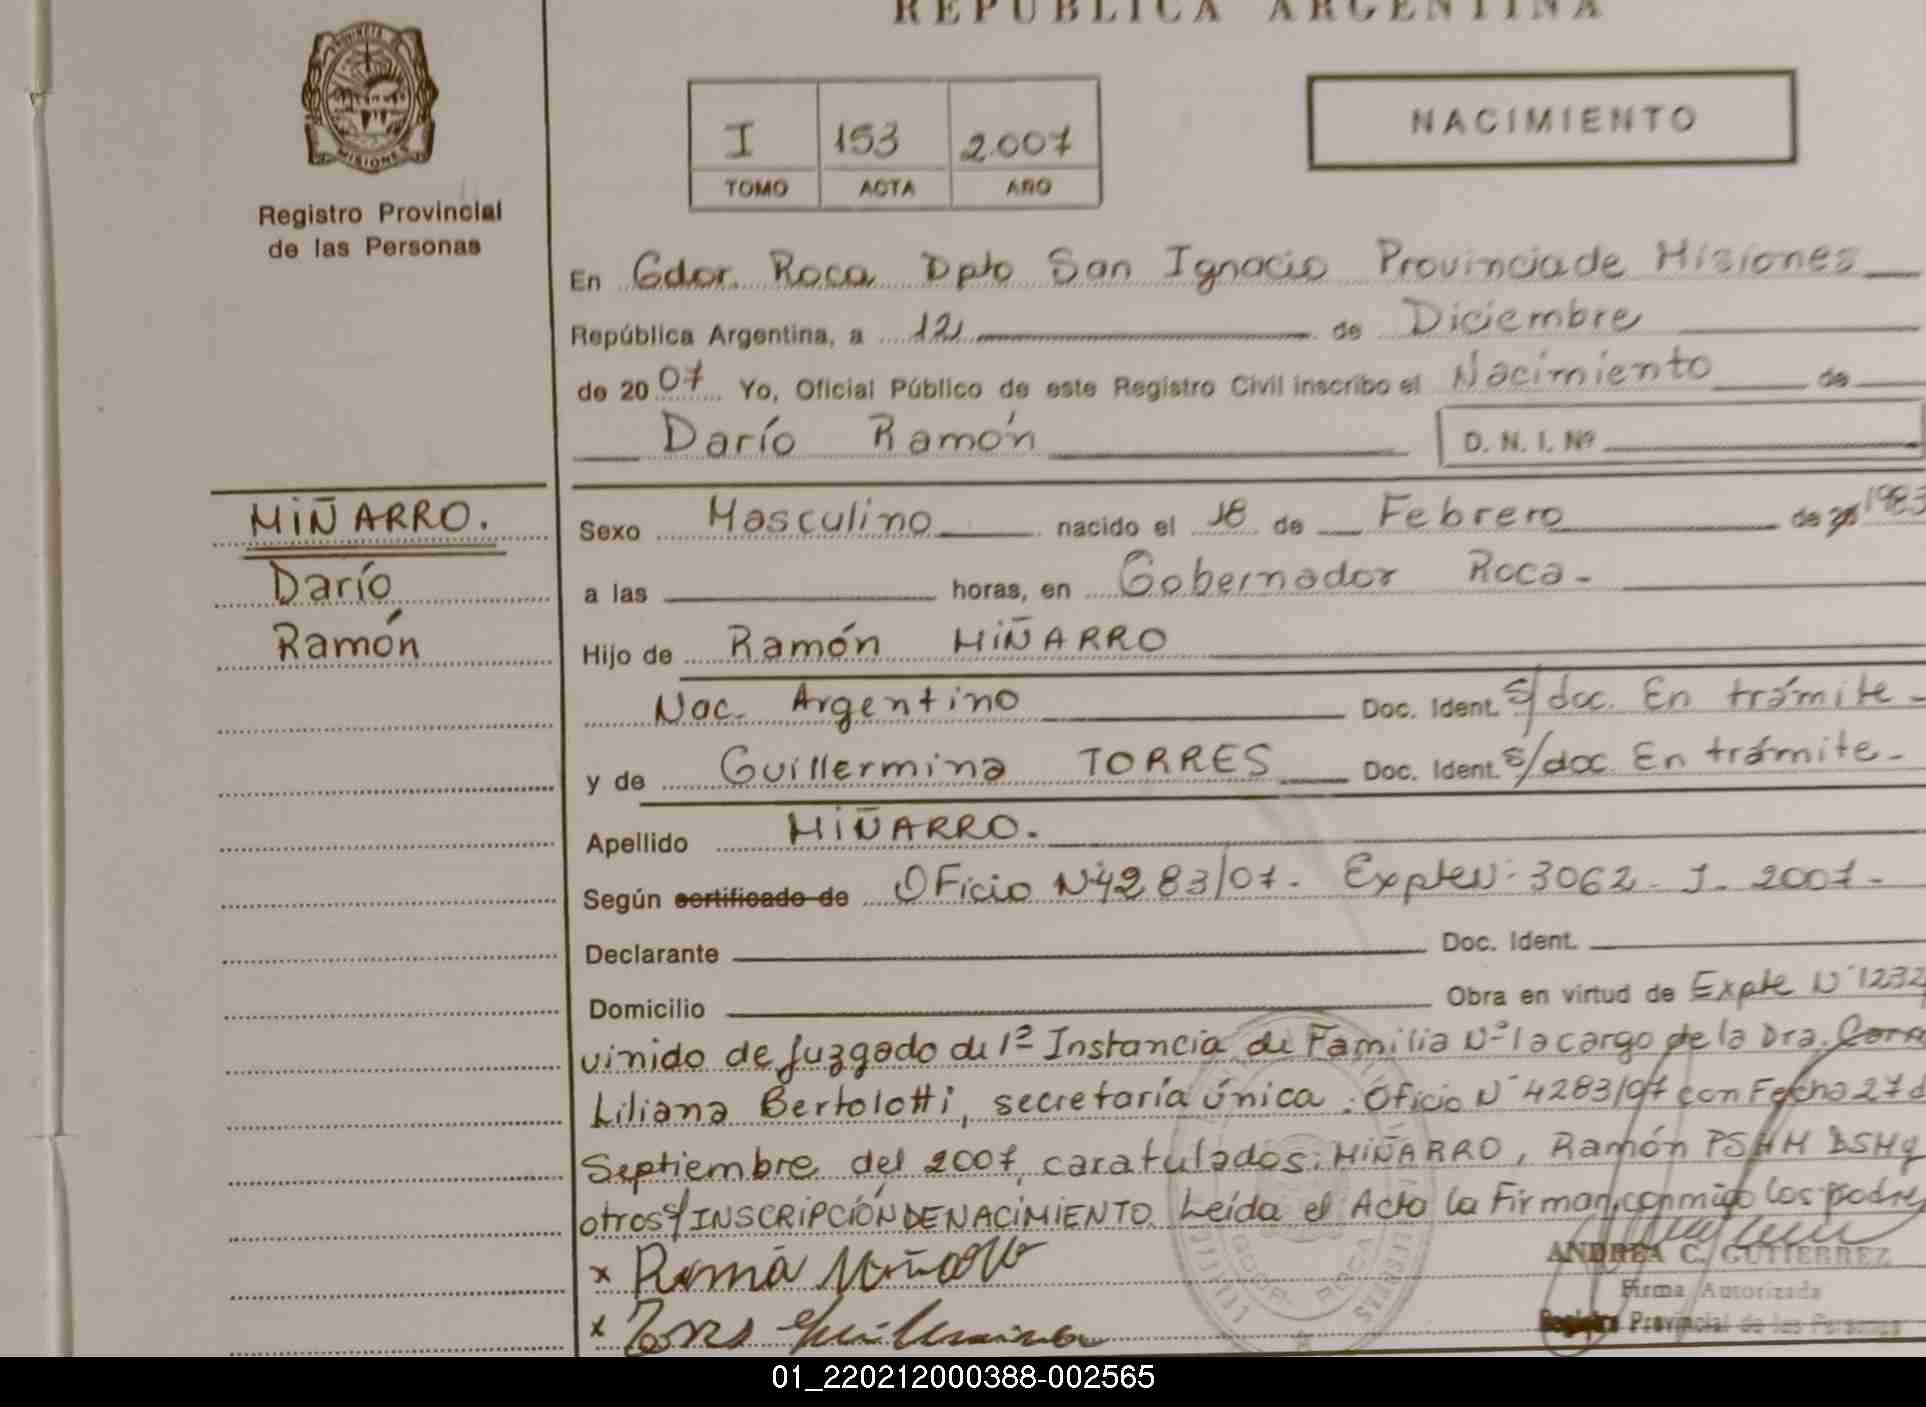 REPUBLICA ARGENTINA
PROVINCIA DE
MISIONES
Registro Provincial
de las Personas
I 153 2.007
TOMO ACTA AÑO
NACIMIENTO
En Gdor. Roca Dpto San Ignacio Provincia de Misiones
República Argentina, a 12 de Diciembre
de 20 07 Yo, Oficial Público de este Registro Civil inscribo el Nacimiento de
Darío Ramón D. N. I. Nº
MIÑARRO.
Darío
Ramón
Sexo Masculino nacido el 18 de Febrero de 1983
a las horas, en Gobernador Roca-
Hijo de Ramón MIÑARRO
Nac. Argentino Doc. Ident. s/doc. En trámite-
y de Guillermina TORRES Doc. Ident. s/doc. En trámite-
Apellido MIÑARRO.
Según certificado de Oficio Nº 4283/07- Expte Nº 3062- J- 2007-
Declarante Doc. Ident.
Domicilio Obra en virtud de Expte Nº 1232
vinido de Juzgado de 1º Instancia de Familia Nº 1 a cargo de la Dra.
Liliana Bertolotti, secretaría única. Oficio Nº 4283/07 con Fecha 27 d
Septiembre del 2007, caratulados: MIÑARRO, Ramón PSHM DSHg
otros s/INSCRIPCIÓN DE NACIMIENTO. Leída el Acta la Firman conmigo los padre
x Ramón Miñarro
x Torres Guillermina
ANDREA C. GUTIERREZ
Firma Autorizada
Registro Provincial de las Personas
GDOR. ROCA
01_220212000388-002565